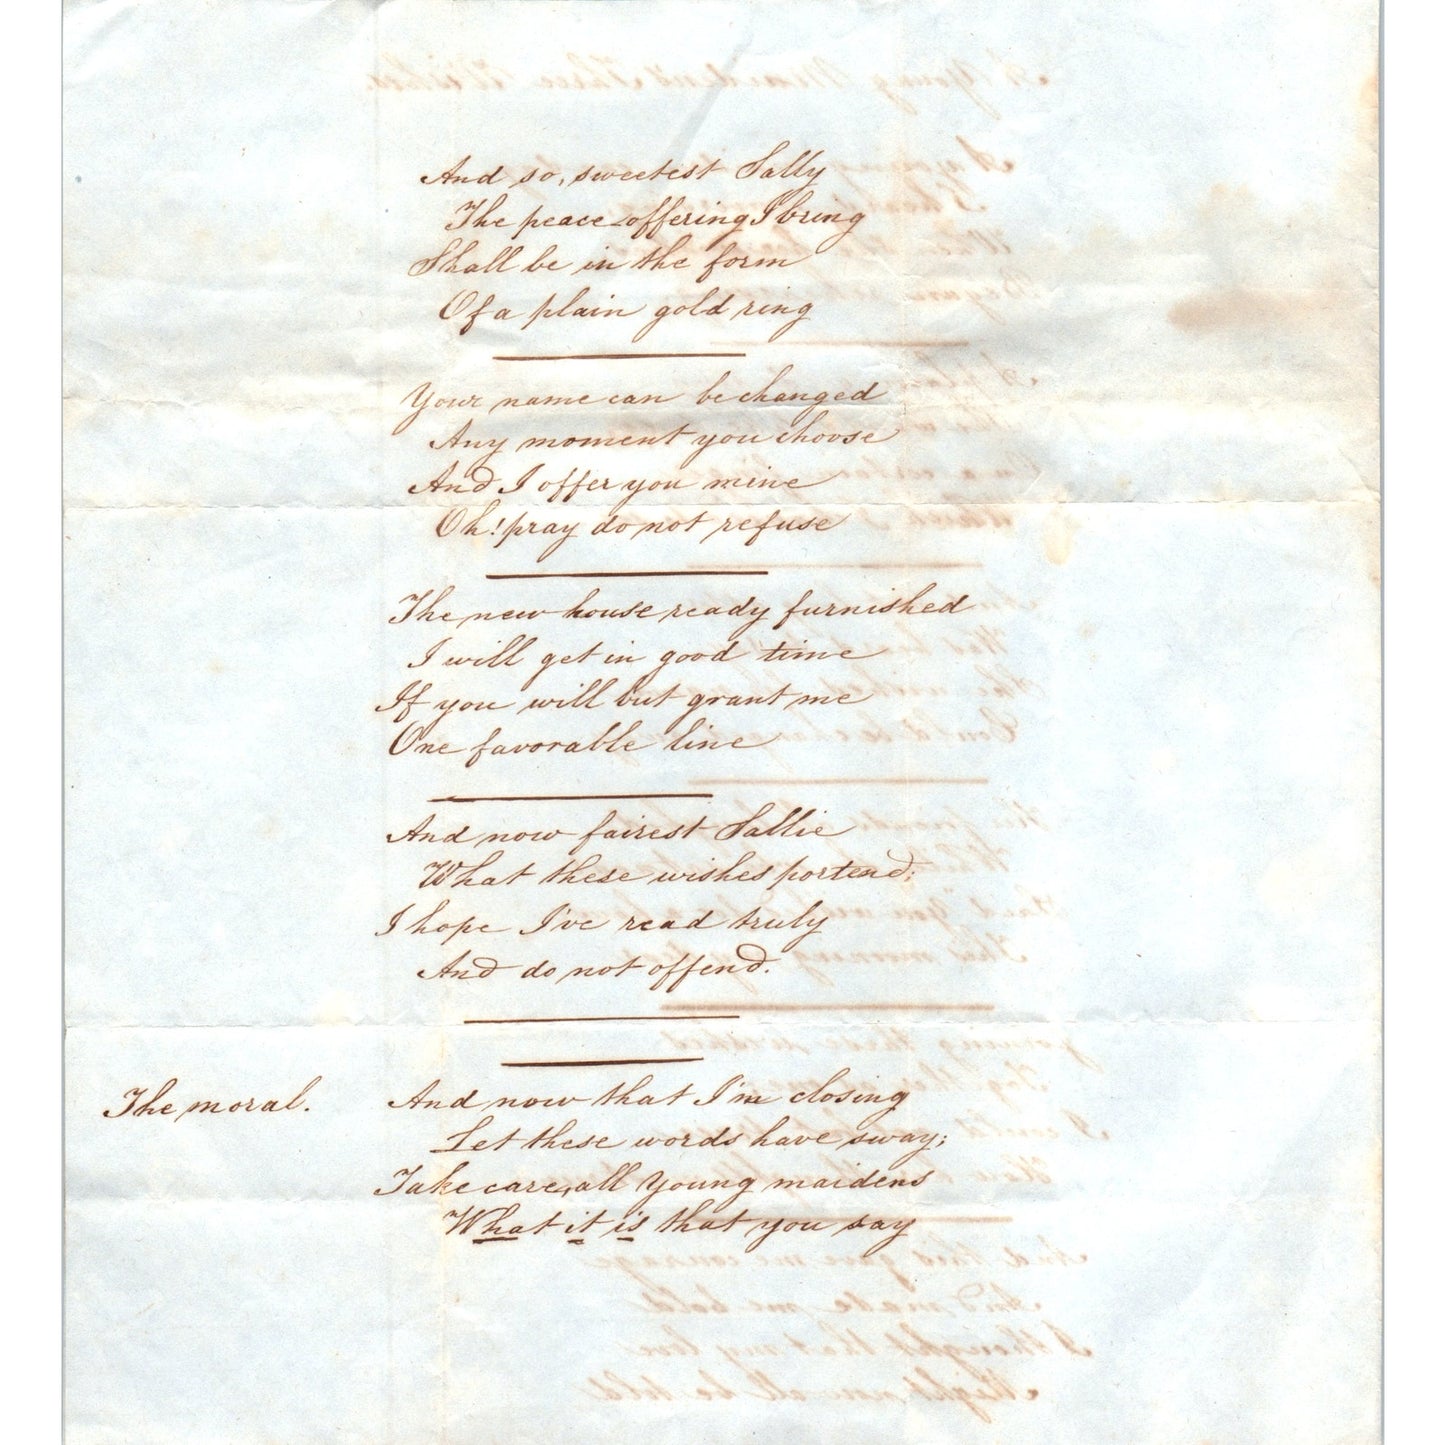 And so, sweetest Sally
The peace-offering I bring
Shall be in the form
Of a plain gold ring
Your name can be changed
Any moment you choose
And I offer you mine
Oh! pray do not refuse
The new house ready furnished
I will get in good time
If you will but grant me
One favorable line
And now fairest Sallie
What these wishes portend;
I hope I've read truly
And do not offend.
The moral. And now that I'm closing
Let these words have sway;
Take care, all Young maidens
What it is that you say